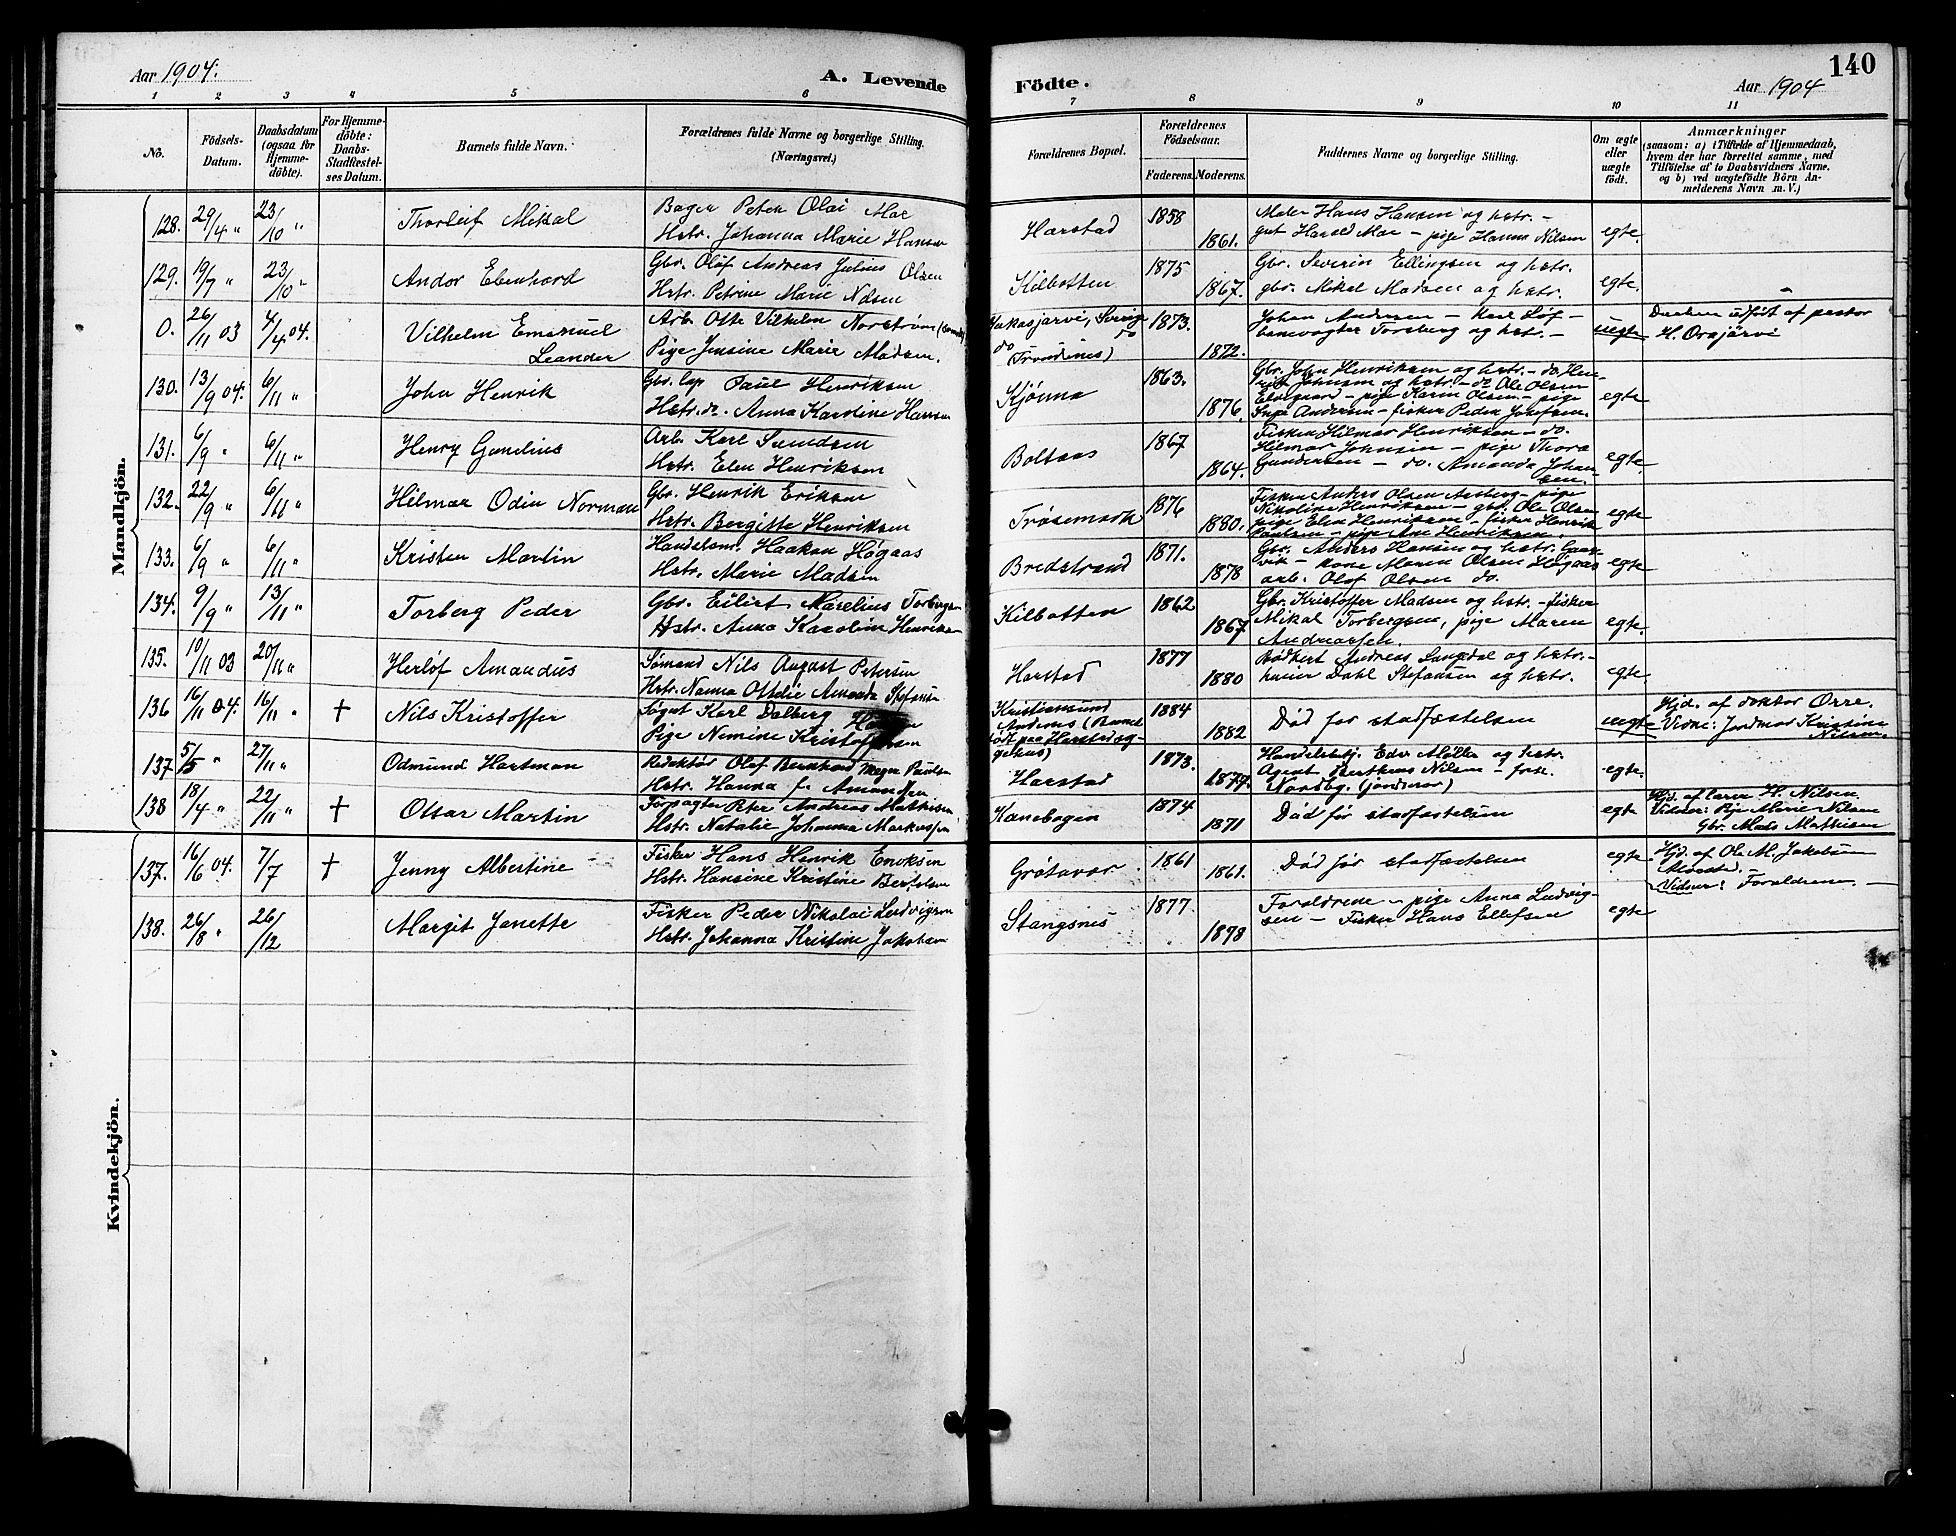 Aar 1904.
A. Levende
Födte.
Aar 1904
140
1 2 3 4 5 6 7 8 9 10 11
No.
Födsels-
Datum.
Daabsdatum
(ogsaa for
Hjemme-
döbte).
For Hjemme-
döbte:
Daabs-
Stadfæstel-
ses Datum.
Barnets fulde Navn.
Forældrenes fulde Navne og borgerlige Stilling.
(Næringsvei.)
Forældrenes Bopæl.
Forældrenes
Födselsaar.
Faderens. Moderens.
Faddernes Navne og borgerlige Stilling.
Om ægte
eller
uægte
födt.
Anmærkninger
(saasom: a) i Tilfælde af Hjemmedaab,
hvem der har forrettet samme, med
Tilföielse af to Daabsvidners Navne,
og b) ved uægtefödte Börn An-
melderens Navn m. V.)
Mandkjön.
128. 29/4 " 23/10 " Thorleif Mikal
Bager Peter Olai Moe
Hstr. Johanna Marie Hansen
Harstad 1858 1861.
Maler Hans Hansen og hstr. -
gut Harald Moe - pige Hanna Nilsen
egte.
129. 19/7 " 23/10 " Andor Ebenhard
Gbr. Olof Andreas Julius Olsen
Hstr. Petrine Marie Nilsen
Kilbotten 1875 1867.
Gbr. Severin Ellingsen og hstr.
gbr. Mikal Madsen og hstr.
egte.
0. 26/11 03 4/4 04. Vilhelm Emanuel
Leander
Arb. Otto Vilhelm Norstrøm
Pige Jensine Marie Madsen.
Jukasjarvi, Sverige
do
Trondenes)
1873. 1872.
Johan Andersen - Karl Löf -
banevogter Forsberg og hstr. -
uegte
Daaben udført af pastor
H. Orajärvi
130. 13/9 04. 6/11 " John Henrik
Gbr. lap Paul Henriksen
Hstr. do. Anna Karoline Hansen
Kjønna 1863. 1876.
Gbr. John Henriksen og hstr. - do Hen-
rik Johnsen og hstr. - do Ole Olsen
Elvegaard - pige Karen Olsen - pige
Inga Andersen - fisker Peder Josefsen.
egte
131. 6/9 " 6/11 " Henry Gunelius
Arb. Karl Sundsen
Hstr. Elen Henriksen
Boltaas 1867 1864.
Fisker Hilmar Henriksen - do.
Hilmar Johnsen - pige Thora
Gundersen - do. Amanda Johan
sen.
egte
132. 22/9 " 6/11 " Hilmar Odin Norman
Gbr. Henrik Eriksen
Hstr. Bergitte Henriksen
Trøsemark 1876 1880.
Fisker Anders Olsen Aasberg - pige
Nikoline Henriksen - gbr. Ole Olsen
pige Elen Henriksen - fisker Henrik
Paulsen - pige Ane Henriksen.
egte
133. 6/9 " 6/11 " Kristen Martin
Handelsm. Haakon Høgaas
Hstr. Marie Madsen
Bredstrand 1871. 1878
Gbr. Anders Hansen og hstr. Gaas-
vik - kone Maren Olsen Høgaas
arb. Olof Olsen do.
egte
134. 9/9 " 13/11 " Torberg Peder
Gbr. Eilert Marelius Torbergsen
Hstr. Anna Karoline Henriksen
Kilbotten 1862 1867.
Gbr. Kristoffer Madsen og hstr. - fisker
Mikal Torbergsen, pige Maren
Andreassen.
egte.
135. 10/11 03 20/11 " Herlof Amandus
Sømand Nils August Petersen
Hstr. Nanna Ottelie Amanda Stefansen
Harstad 1877 1880
Bødker Andreas Langdal og hstr. -
husier Dahl Stefansen og hstr.
egte
136 16/11 04. 16/11 " † Nils Kristoffer
Søgut Karl Dalberg
Pige Nemine Kristoffersen
Kristiansund
Andenes (Barnet
født paa Harstad sy-
gehus)
1884 1882
Død før stadfæstelsen
uegte
Hjd. af doktor Orre.
Vidne: Jordmor Kristine
Nilsen.
137 5/5 " 27/11 " Odmund Hartman
Redaktør Olaf Bernhard Meyer Paulsen
Hstr. Hanna f. Amundsen
Harstad 1873. 1877.
Handelsbtj. Edv. Møller og hstr.
Agent Nilsen - frk.
Nordby. (jordmor)
egte.
138 18/4 " 22/11 " † Ottar Martin
Forpagter Peter Andreas Mathisen
Hstr. Natalie Johanna Markussen
Kanebogen 1874 1871
Død før stadfæstelsen
egte
Hjd. af lærer H. Nilsen
Vidner: Pige Marie Nilsen
Gbr. Mats Mathisen
Kvindekjön.
137. 16/6 04. 7/7 † Jenny Albertine
Fisker Hans Henrik Enoksen
Hstr. Hansine Kristine Bertelsen
Grøtavær 1861 1861.
Død før stadfæstelsen
egte
Hjd. af Ole M. Jakobsen
Alvestad.
Vidner: Forældrene. -
138. 26/8 " 26/12 Margit Janette
Fisker Peder Nikolai Ludvigsen
Hstr. Johanna Kristine Jakobsen
Stangsnes 1877. 1878
Forældrene - pige Anna Ludvig-
sen - Fisker Hans Ellefsen
egte